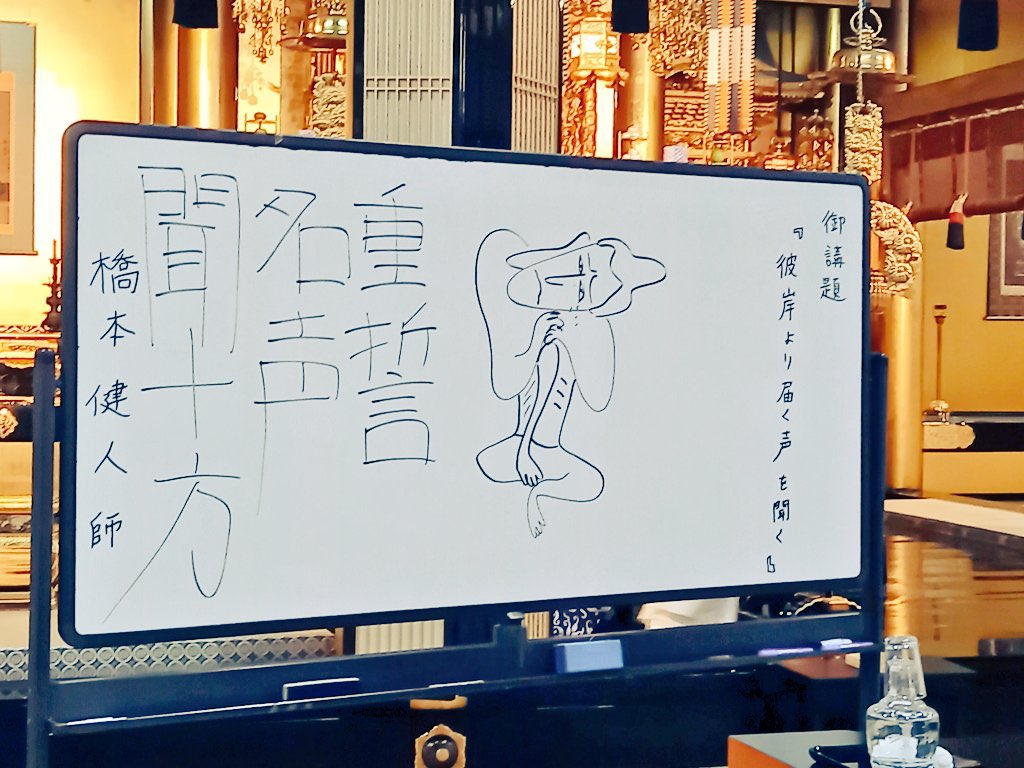 御講題
『彼岸より届く声を聞く』
重誓
名声
聞十方
橋本健人師